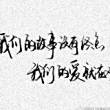 我们的故事没有终点
我们的爱就在